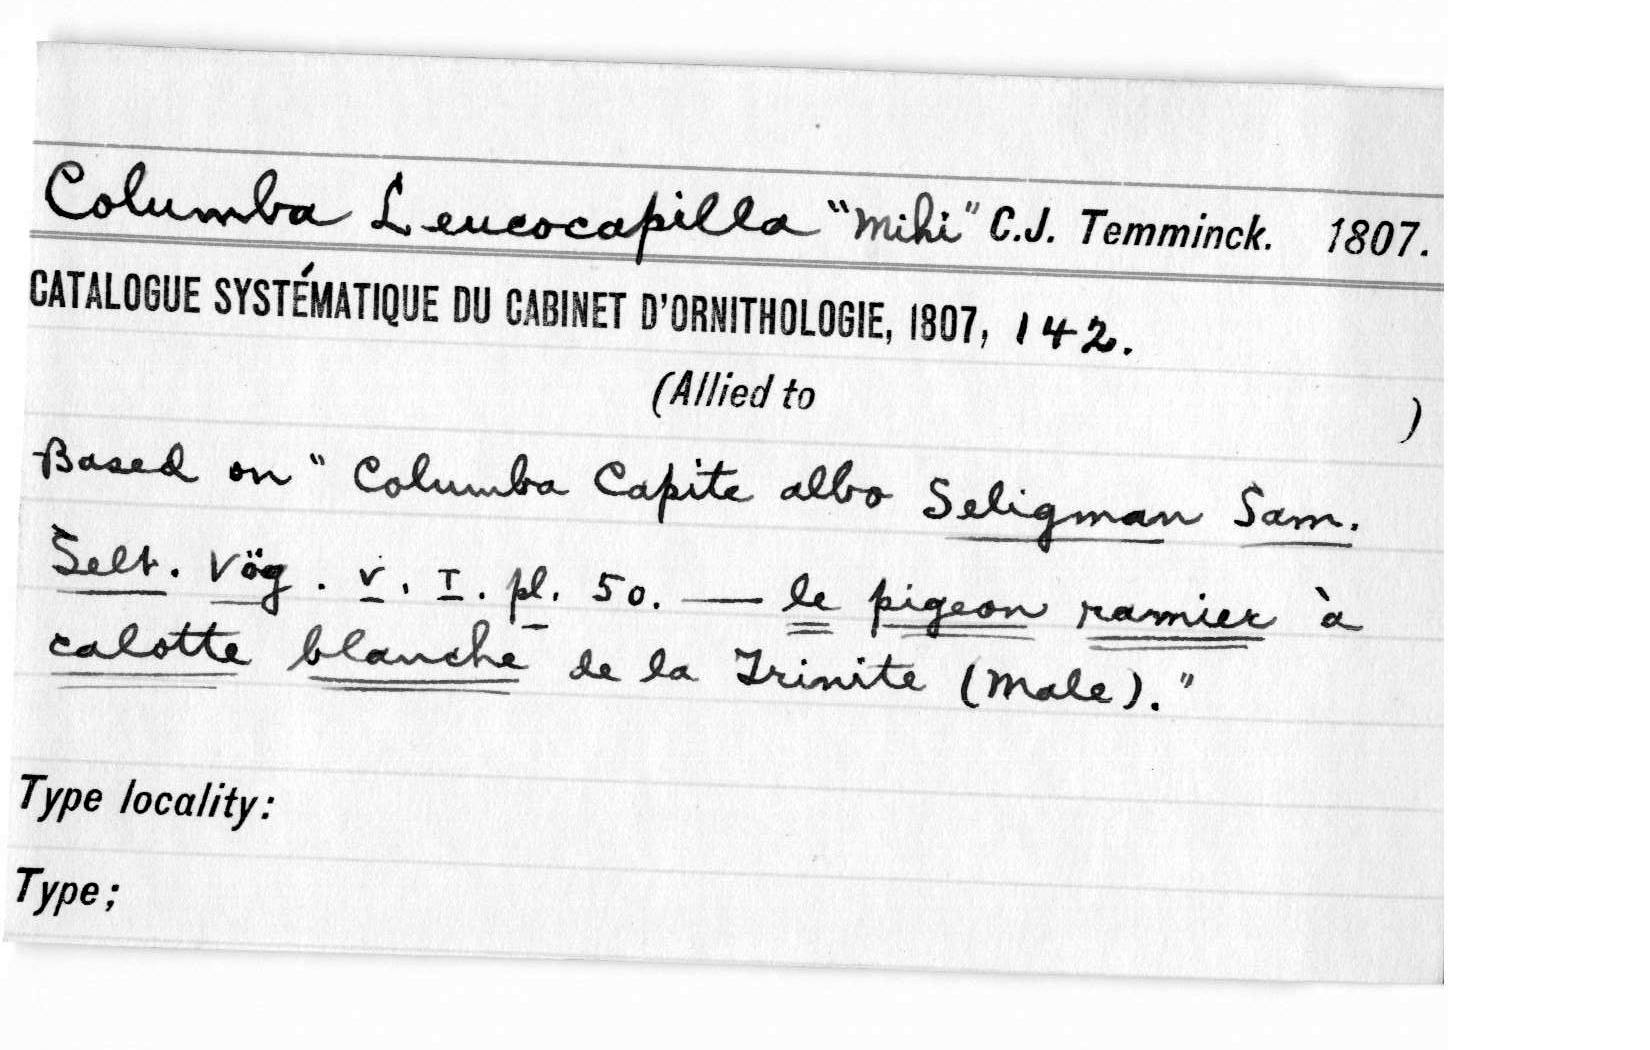 Columba Leucocapilla "mihi" C.J. Temminck. 1807.
CATALOGUE SYSTÉMATIQUE DU CABINET D'ORNITHOLOGIE, 1807, 142.
(Allied to )
Based on "Columba Capite albo Seligman Sam.
Selt. Vög. v. I. pl. 50. — le pigeon ramier à
calotte blanche de la Trinite (Male)."
Type locality:
Type;